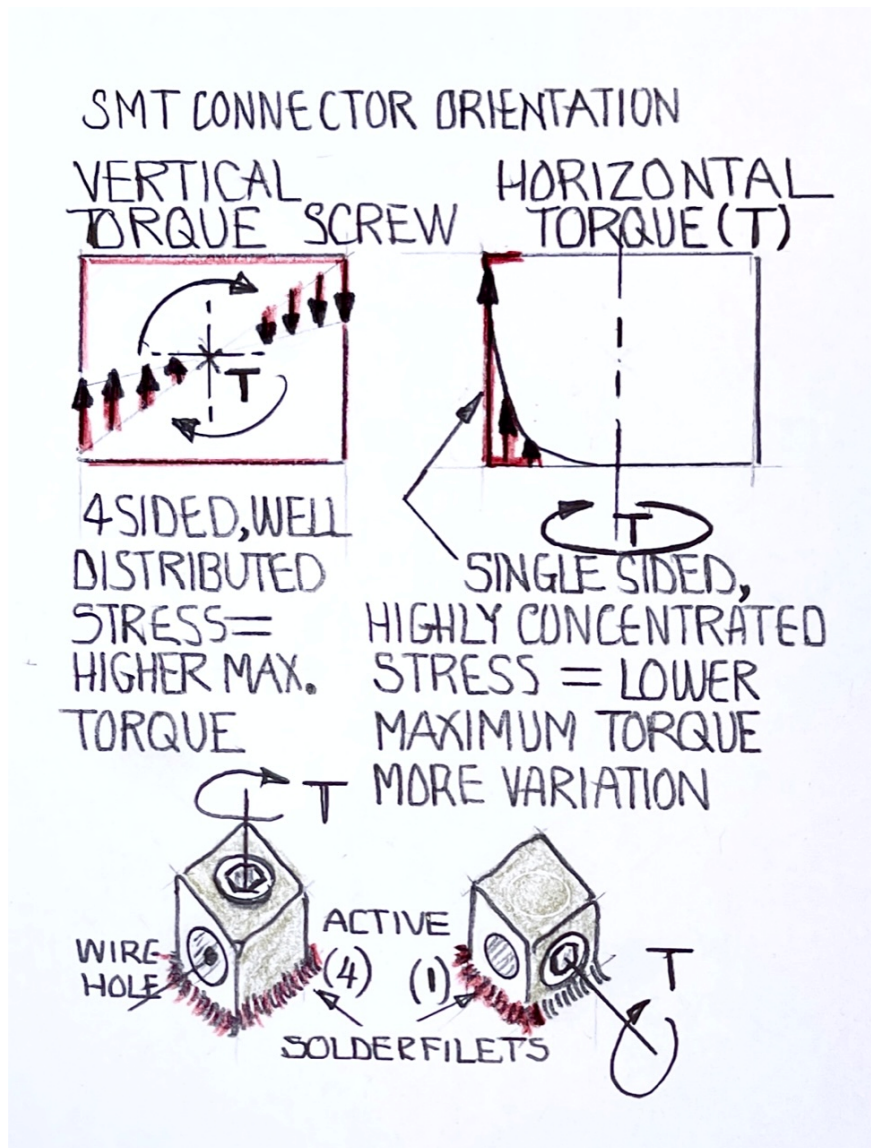 SMT CONNECTOR ORIENTATION
VERTICAL
TORQUE SCREW
HORIZONTAL
TORQUE (T)
T
T
4 SIDED, WELL
DISTRIBUTED
STRESS=
HIGHER MAX.
TORQUE
SINGLE SIDED,
HIGHLY CONCENTRATED
STRESS = LOWER
MAXIMUM TORQUE
MORE VARIATION
T
WIRE
HOLE
ACTIVE
(4) (1)
T
SOLDERFILETS